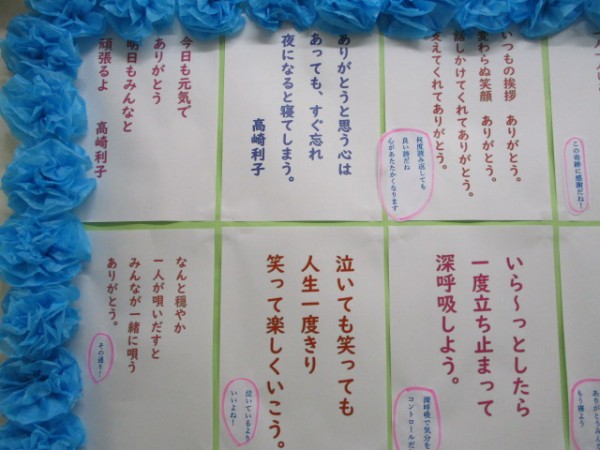 いつもの挨拶　ありがとう。
変わらぬ笑顔　ありがとう。
話しかけてくれてありがとう。
支えてくれてありがとう。
何度読み返しても
良い詩だね
心があたたかくなります
ありがとうと思う心は
あっても、すぐ忘れ
夜になると寝てしまう。
高崎利子
今日も元気で
ありがとう
明日もみんなと
頑張るよ
高崎利子
この奇跡に感謝だね！
いら～っとしたら
一度立ち止まって
深呼吸しよう。
深呼吸で気分を
コントロールだ
泣いても笑っても
人生一度きり
笑って楽しくいこう。
泣いているより
いいよね！
なんと穏やか
一人が唄いだすと
みんなが一緒に唄う
ありがとう。
その通り！
ありがとうみん
もう寝よう